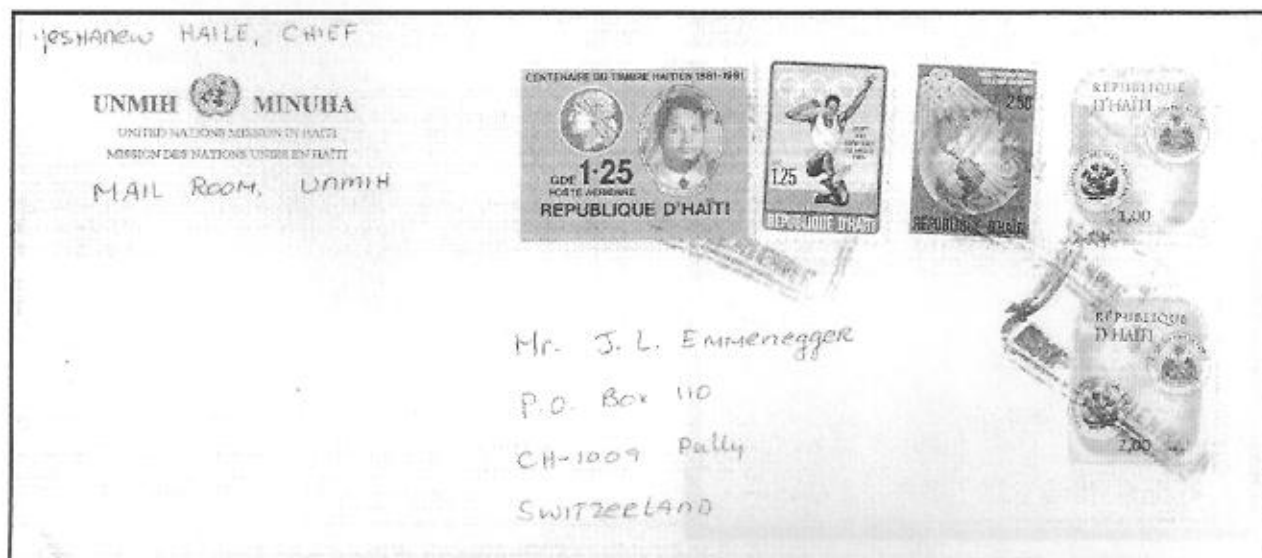 Yeshanew HAILE, CHIEF
UNMIH MINUHA
UNITED NATIONS MISSION IN HAITI
MISSION DES NATIONS UNIES EN HAÏTI
MAIL ROOM, UNMIH
CENTENAIRE DU TIMBRE HAITIEN 1881-1981
GDE 1.25
POSTE AERIENNE
REPUBLIQUE D'HAÏTI
1.25
REPUBLIQUE D'HAITI
2.50
REPUBLIQUE D'HAITI
RÉPUBLIQUE
D'HAÏTI
1,00
RÉPUBLIQUE
D'HAÏTI
2,00
Mr. J. L. Emmenegger
P.O. Box 110
CH-1009 Pully
SWITZERLAND